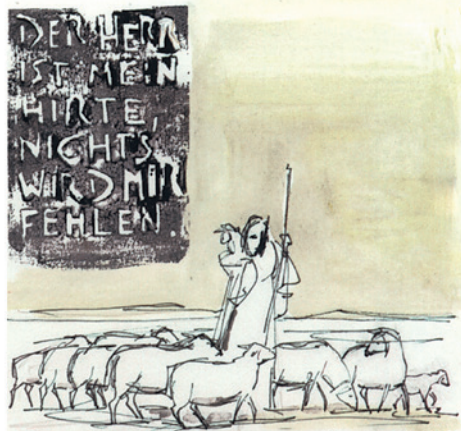 DER HERR
IST MEIN
HIRTE,
NICHTS
WIRD MIR
FEHLEN.